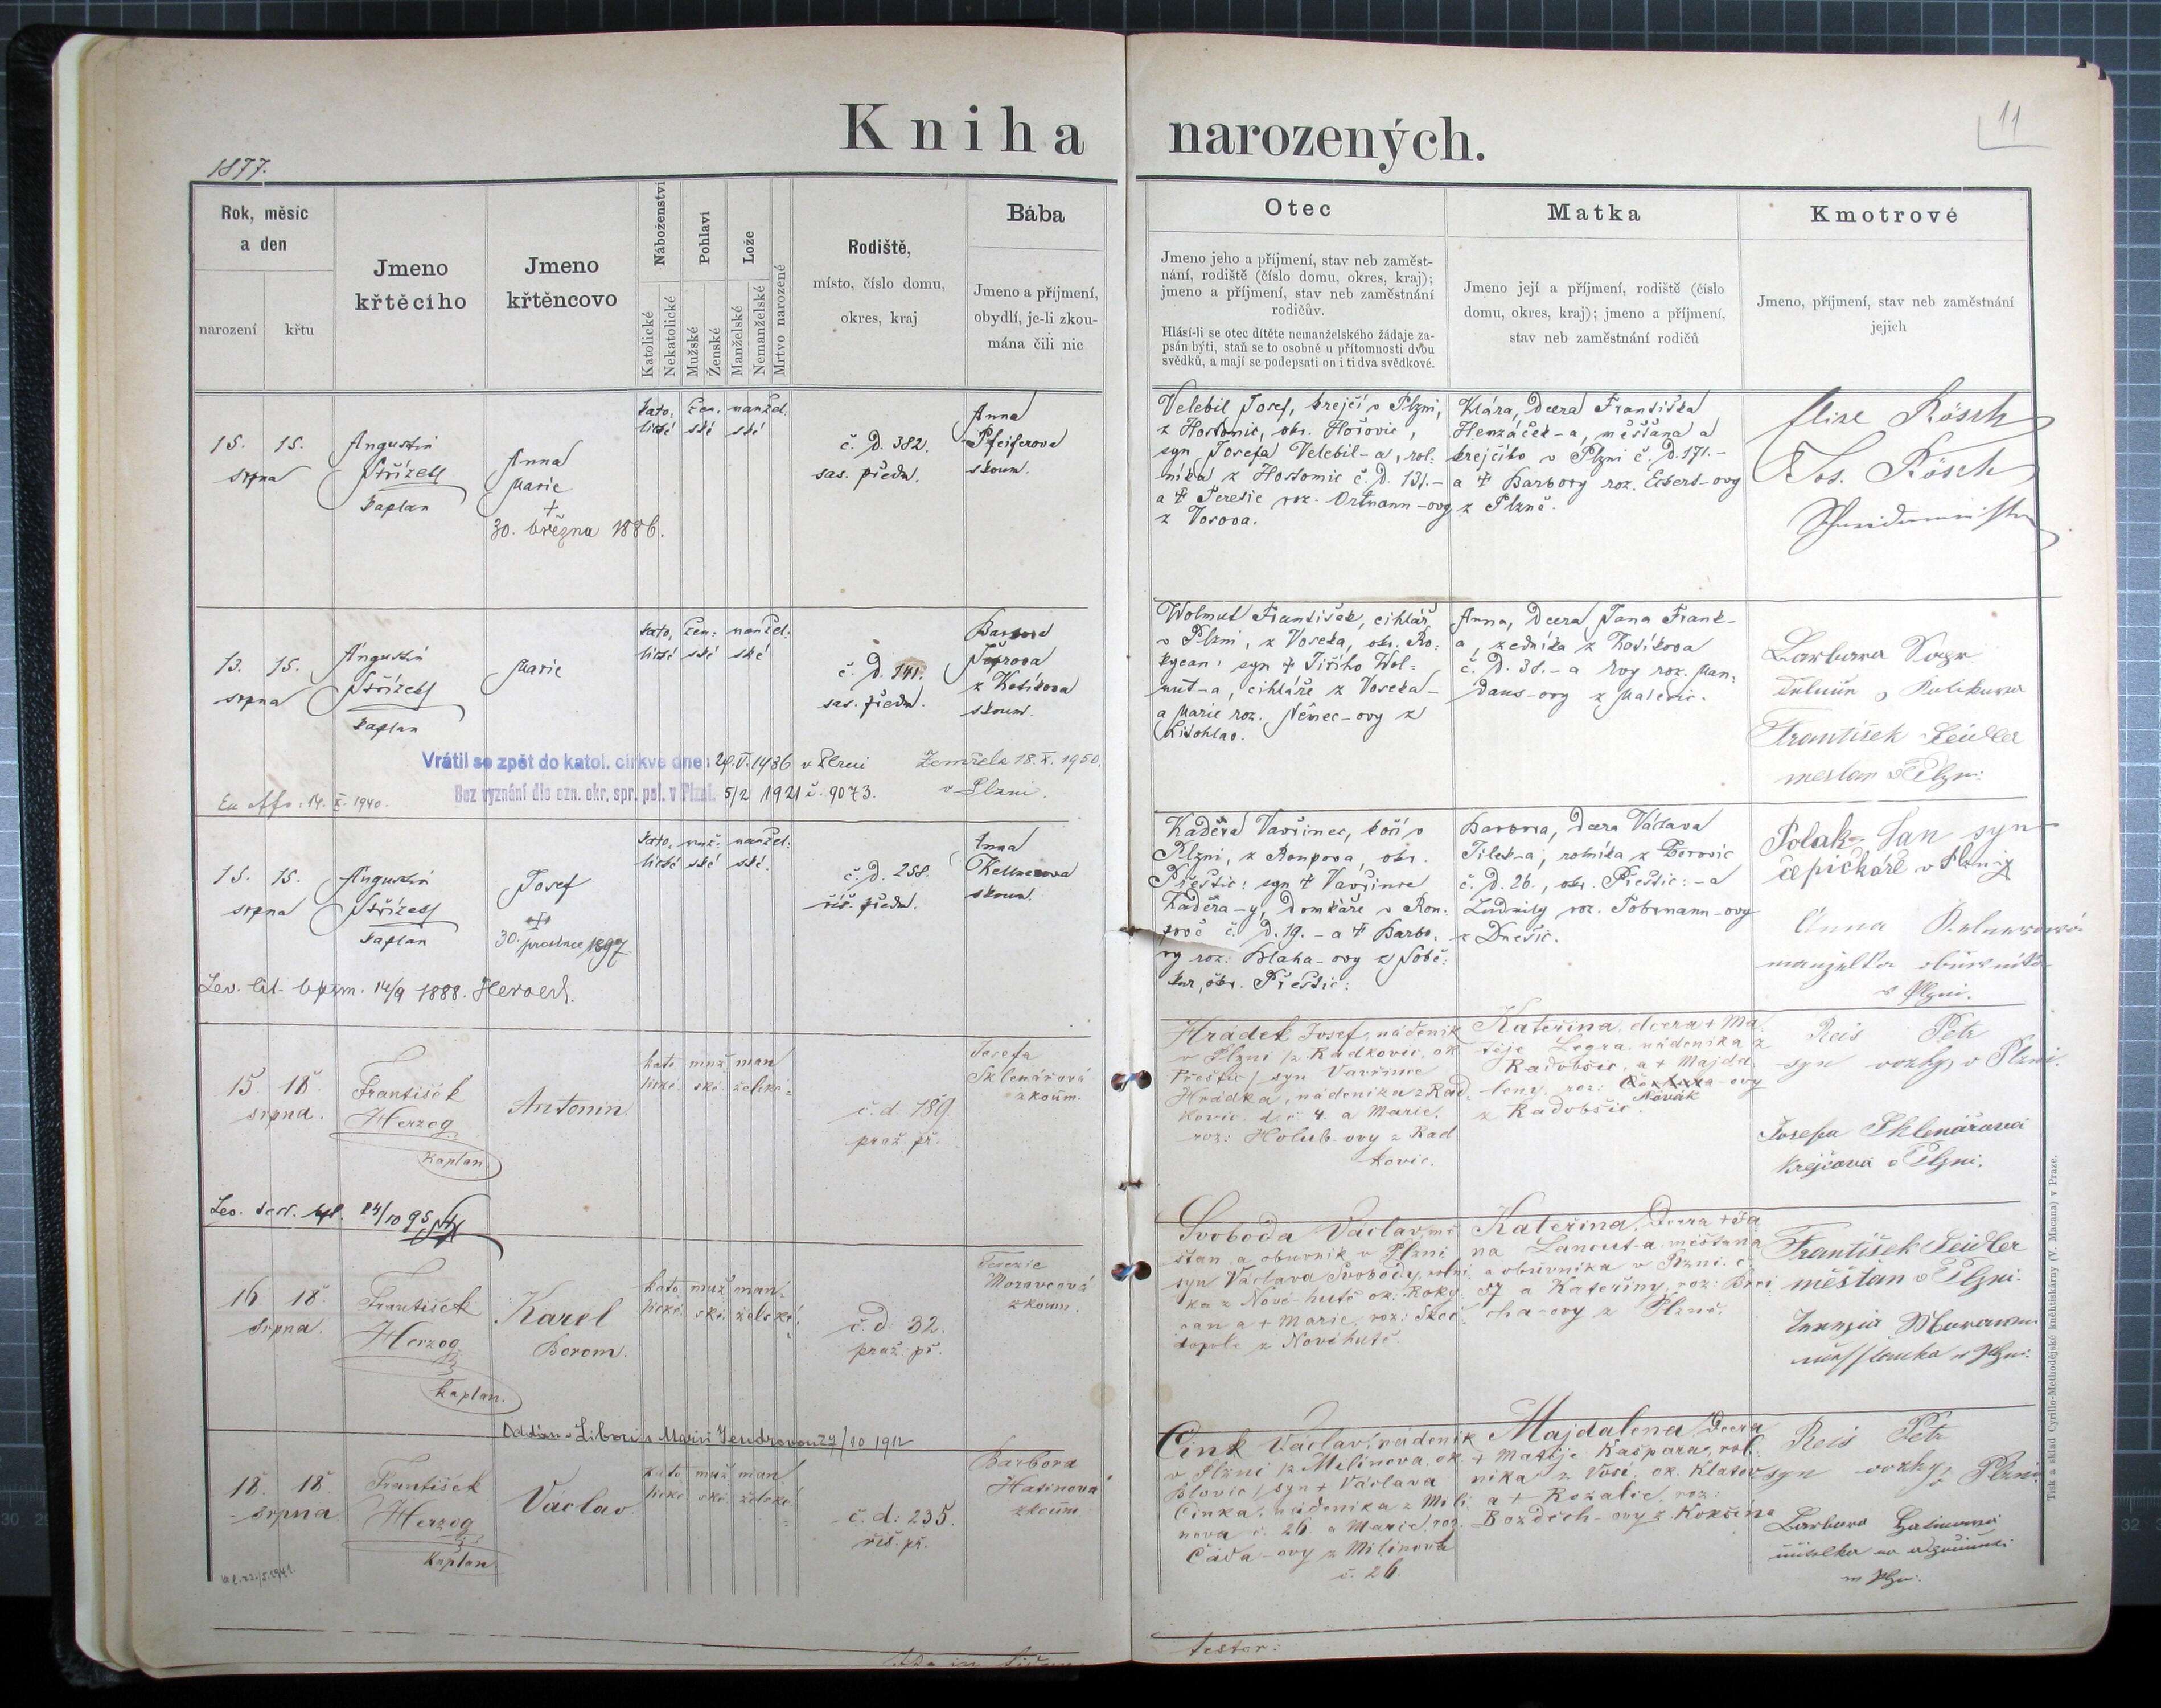 Kniha narozených.
11
1877.
Rok, měsíc
a den
narození
křtu
Jmeno
křtěcího
Jmeno
křtěncovo
Náboženství
Katolické
Nekatolické
Pohlaví
Mužské
Ženské
Lože
Manželské
Nemanželské
Mrtvo narozené
Rodiště,
místo, číslo domu,
okres, kraj
Bába
Jmeno a příjmení,
obydlí, je-li zkou-
mána čili nic
Otec
Jmeno jeho a příjmení, stav neb zaměst-
nání, rodiště (číslo domu, okres, kraj);
jmeno a příjmení, stav neb zaměstnání
rodičův.
Hlásí-li se otec dítěte nemanželského žádaje za-
psán býti, staň se to osobně u přítomnosti dvou
svědků, a mají se podepsati on i ti dva svědkové.
Matka
Jmeno její a příjmení, rodiště (číslo
domu, okres, kraj); jmeno a příjmení,
stav neb zaměstnání rodičů
Kmotrové
Jmeno, příjmení, stav neb zaměstnání
jejich
15. 15.
srpna
Augustin
Střízek
kaplan
Anna
Marie
+
30. března 1886.
kato: žen: manžel:
lické ské ské
č. d. 382.
sas. předm.
Anna
Pfeiferova
skoum.
Velebil Josef, krejčí v Plzni,
z Hostomic, okr. Hořovic,
syn Josefa Velebil-a, rol-
níka z Hostomic č. d. 131. –
a † Terezie roz. Ortmann-ovy
z Vosova.
Klára, dcera Františka
Henzáček-a, měšťana a
krejčího v Plzni č. d. 171. –
a † Barbory roz. Eckert-ovy
z Plzně.
Elise Rösch
Jos. Rösch
13. 15.
srpna
Augustin
Střízek
kaplan
Marie
kato: žen: manžel:
lické ské ské
č. d. 141.
sas. předm.
Barbora
z Kotíkova
skoum.
Wolmut František, cihlář
v Plzni, z Voseka, okr. Ro-
kycan: syn † Jiřího Wol-
mut-a, cihláře z Voseka –
a Marie roz. Němec-ovy z
Litohlav.
Anna, dcera Jana Frank-
a, zedníka z Kotíkova
č. d. 38. – a
z Malesic.
František Seidler
mestan v Plzni:
Vrátil se zpět do katol. církve dne: 29. V. 1936 v Plzni
Zemřela 18. X. 1950.
v Plzni.
Bez vyznání dle ozn. okr. spr. pol. v Plzni. 5/2 1921 č. 9073.
Ex offo: 14. X. 1940.
15. 15.
srpna
Augustin
Střízek
kaplan
Josef
30. prosince 1897
kato: muž: manžel:
lické ské ské.
č. d. 258.
říš. předm.
Anna
Kellnerova
skoum.
Kaděra Vavřinec, kočí v
Plzni, z Roupova, okr.
Přeštic: syn † Vavřince
Kaděra-y, domkáře v Rou-
pově č. d. 19. – a † Barbo-
ry roz: Blaha-ovy z Sobě-
kur, okr. Přeštic:
Barbora, dcera Václava
Tilek-a, rolníka z Borovic
č. d. 26., okr. Přeštic: – a
Ludmily roz. Tobrmann-ovy
z Dnešic.
Polak Jan syn
čepičkáře v Plzni
Anna
manželka obuvníka
v Plzni.
Lev. lit. bpzm. 14/9 1888.
15. 18.
srpna.
František
Herzog
kaplan.
Antonin.
kato muž man
lické. ské. želské.
č. d. 189
praž. př.
Josefa
Sklenářová
zkoum.
Hrádek Josef, nádeník
v Plzni /z Radkovic, ok
Přeštic/ syn Vavřince
Hrádka, nádeníka z Rad-
kovic. d. č. 4. a Marie,
roz: Holub-ovy z Rad
kovic.
Kateřina, dcera + Ma
těje Legra, nádeníka z
Radobšic, a + Majda-
leny, roz: -ovy
Novák
z Radobšic.
Reis Petr
syn vozky v Plzni.
Josefa Sklenářová
Krejčová v Plzni.
24/10 95
16. 18.
srpna.
František
Herzog
kaplan.
Karel
Borom.
kato muž man.
lické. ské. želské.
č. d. 32.
praž. př.
Terezie
Moravcová
zkoum.
Svoboda Václav, mě
šťan a obuvník v Plzni
syn Václava Svobody, rolní
ka z Nové-hutě ok: Roky-
can a + Marie, roz: Skoč
dopole z Novéhutě.
Kateřina, dcera + Ja
na Lancut-a, měšťana
a obuvníka v Plzni. č.
57 a Kateřiny, roz:
cha-ovy z Plzně.
František Seidler
měšťan v Plzni.
Oddán s Marií 27/10 1912
18. 18.
srpna
František
Herzog
kaplan.
Václav
kato muž man
lické ské. želské.
č. d: 235.
říš. př.
Barbora
Hatinová
zkoum.
Cink Václav, nádeník
v Plzni /z Milínova, ok
Blovic/ syn + Václava
Cinka, nádeníka z Milí
nova č. 26 a Marie, roz.
Čáda-ovy z Milínova
č. 26.
Majdalena, dcera
+ Matěje Kašpara, rol-
níka z Vosí, ok. Klatov
a + Rozalie, roz:
Bozděch-ovy z Kokšína
Reis Petr
syn vozky v Plzni
v Plzni.
testor:
Tisk a sklad Cyrillo-Methodějské kněhtiskárny (V. Macana) v Praze.